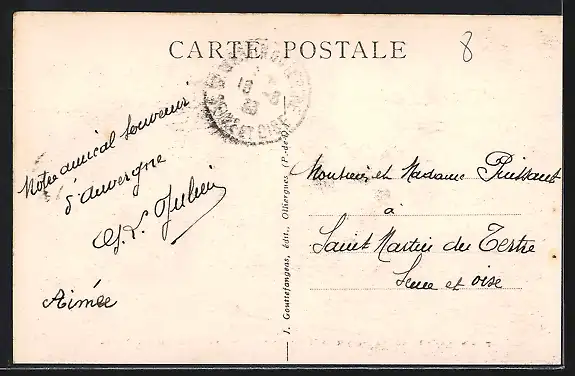 CARTE POSTALE
8
SEINE ET OISE
Notre amical Souvenir
d'auvergne
Aimée
J. Gouttefangeas, édit., Olliergues (P.-de-D.)
Monsieur et Madame Puissant
à
Saint Martin du Tertre
Seine et oise